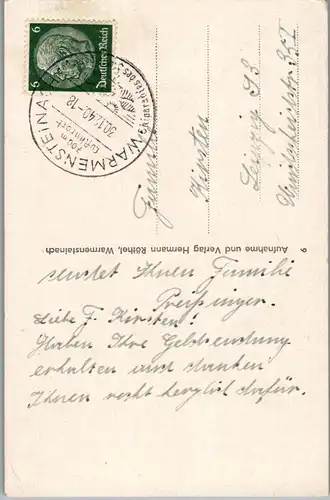 6
6
Deutsches Reich
WARMENSTEINACH
30.12.40.-18
700 m
Luftkurort
Familie
Kirsten
Leipzig S3
Aufnahme und Verlag Hermann Röthel, Warmensteinach.
6
sendet Ihnen Familie
Preißinger.
Liebe F. Kirsten!
Haben Ihre Geldsendung
erhalten und danken
Ihnen recht herzlich dafür.